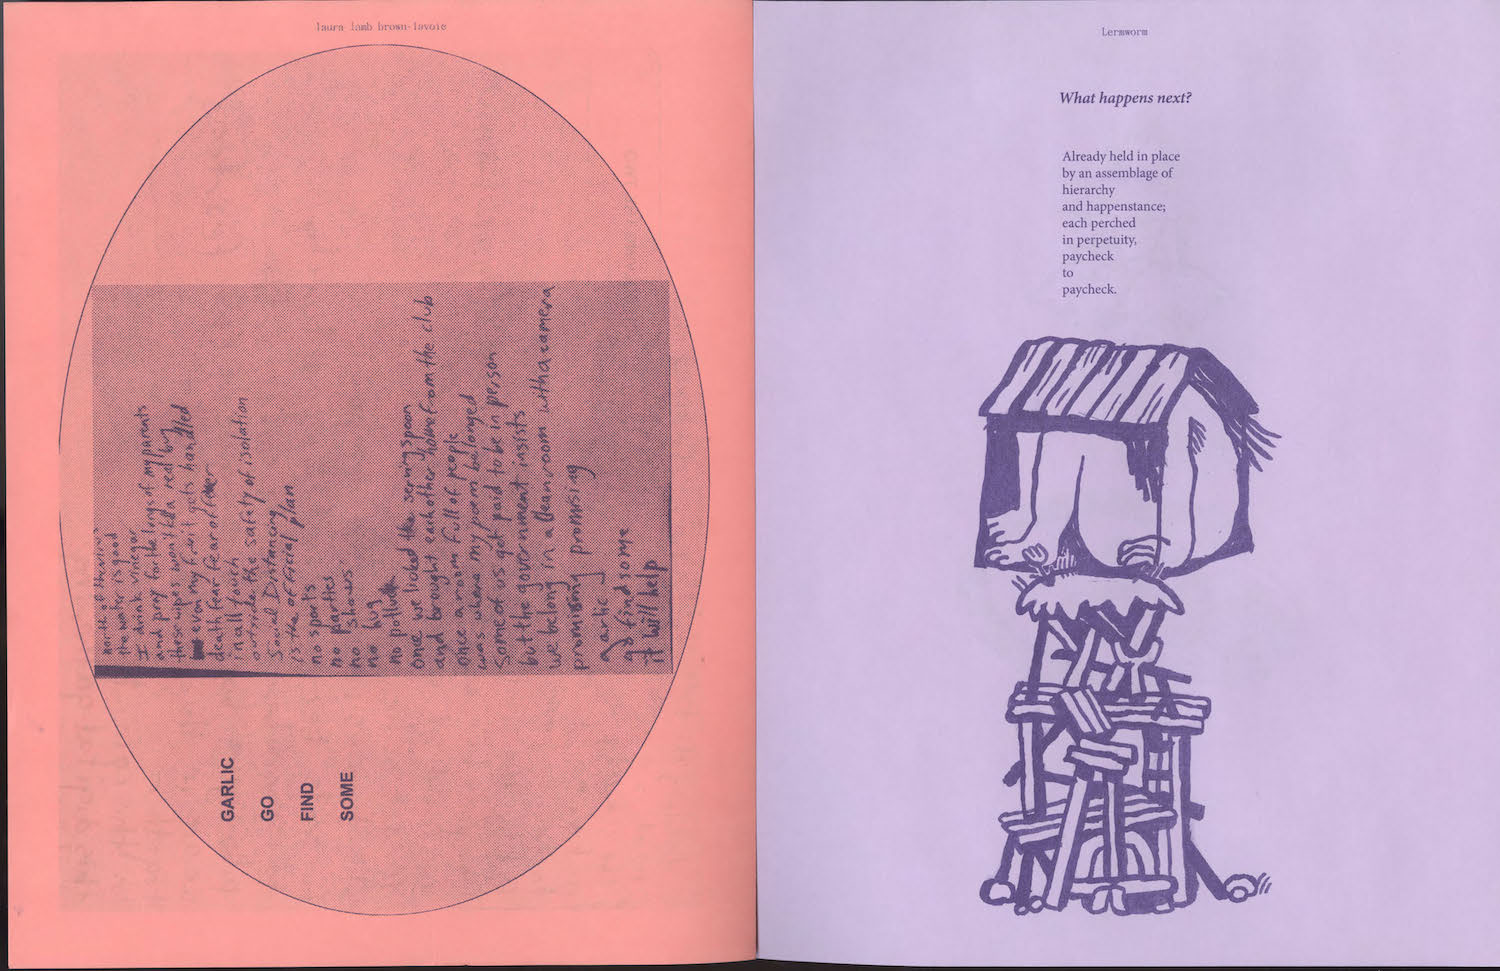 laura lamb brown-lavoie
GARLIC
GO
FIND
SOME
the water is good
I drink vinegar
and pray for the lungs of my parents
these wipes won't kill a real bug
even my fruit gets handled
death fear fear of
in all touch
outside the safety of isolation
Social Distancing
is the official plan
no sports
no parties
no shows
no hug
no potluck
once we licked the serving spoon
and brought each other home from the club
once a room full of people
was where my poem belonged
Some of us get paid to be in person
but the government insists
we belong in a clean room with a camera
promising promising
garlic
go find some
it will help
Lermworm
What happens next?
Already held in place
by an assemblage of
hierarchy
and happenstance;
each perched
in perpetuity,
paycheck
to
paycheck.